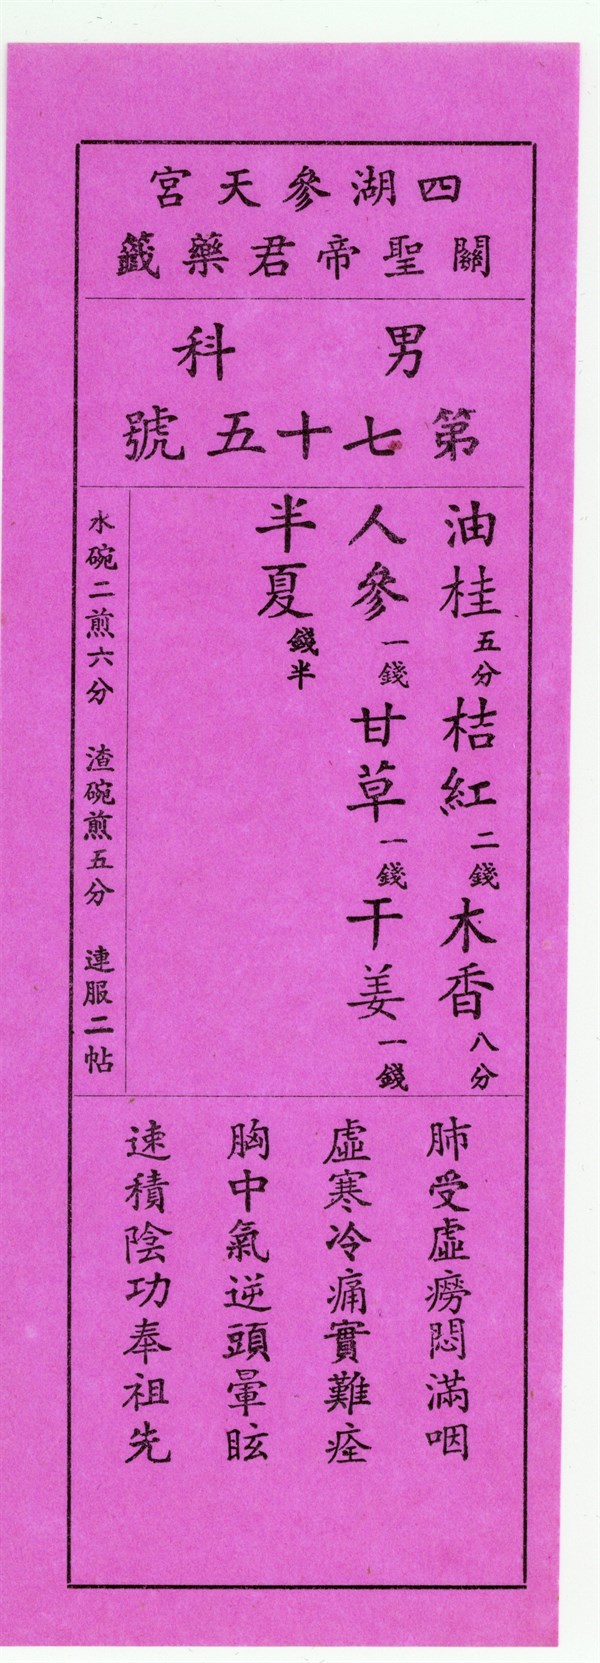 四湖參天宮
關聖帝君藥籤
男科
第七十五號
油桂五分桔紅二錢木香八分
人參一錢甘草一錢干姜一錢
半夏錢半
水碗二煎六分 渣碗煎五分 連服二帖
肺受虛癆悶滿咽
虛寒冷痛實難痊
胸中氣逆頭暈眩
速積陰功奉祖先